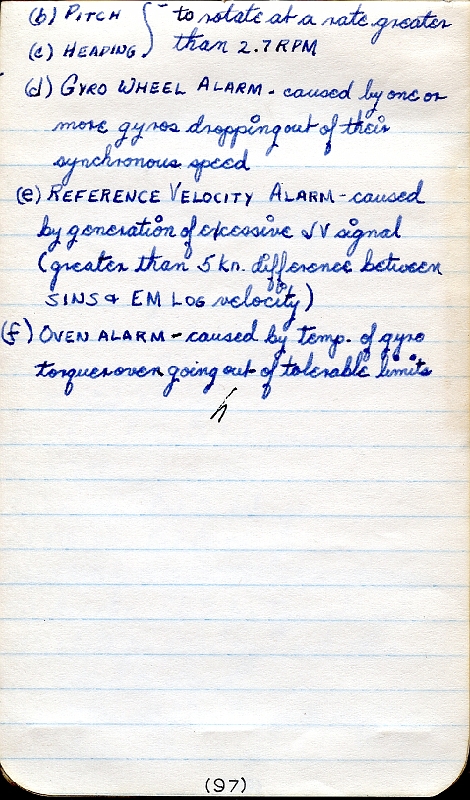 (b) PITCH } to rotate at a rate greater
(c) HEADING } than 2.7 RPM
(d) GYRO WHEEL ALARM - caused by one or
more gyros dropping out of their
synchronous speed
(e) REFERENCE VELOCITY ALARM - caused
by generation of excessive ΔV signal
(greater than 5 kn. difference between
SINS & EM LOG velocity)
(f) OVEN ALARM - caused by temp. of gyro
torquer oven going out of tolerable limits
(97)